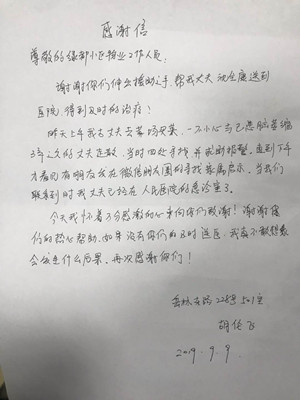 感谢信
尊敬的绿都小区物业工作人员:
谢谢你们伸出援助之手,帮我丈夫 安全送到
医院得到及时的治疗!
昨天上午我与丈夫去菜场买菜,一不小心与已患脑萎缩
3年之久的丈夫走散,当时四处寻找并求助报警,直到下午
才看见有朋友在微信朋友圈的寻找家属启示,当我们
联系到时我丈夫已经在人民医院的急诊室了。
今天我怀着万分感激的心来向你们致谢!谢谢
们的热心帮助,如果没有你们的及时送医,我真不敢想象
会发生什么后果,再次感谢你们!
路228弄501室
胡
2019.9.9.